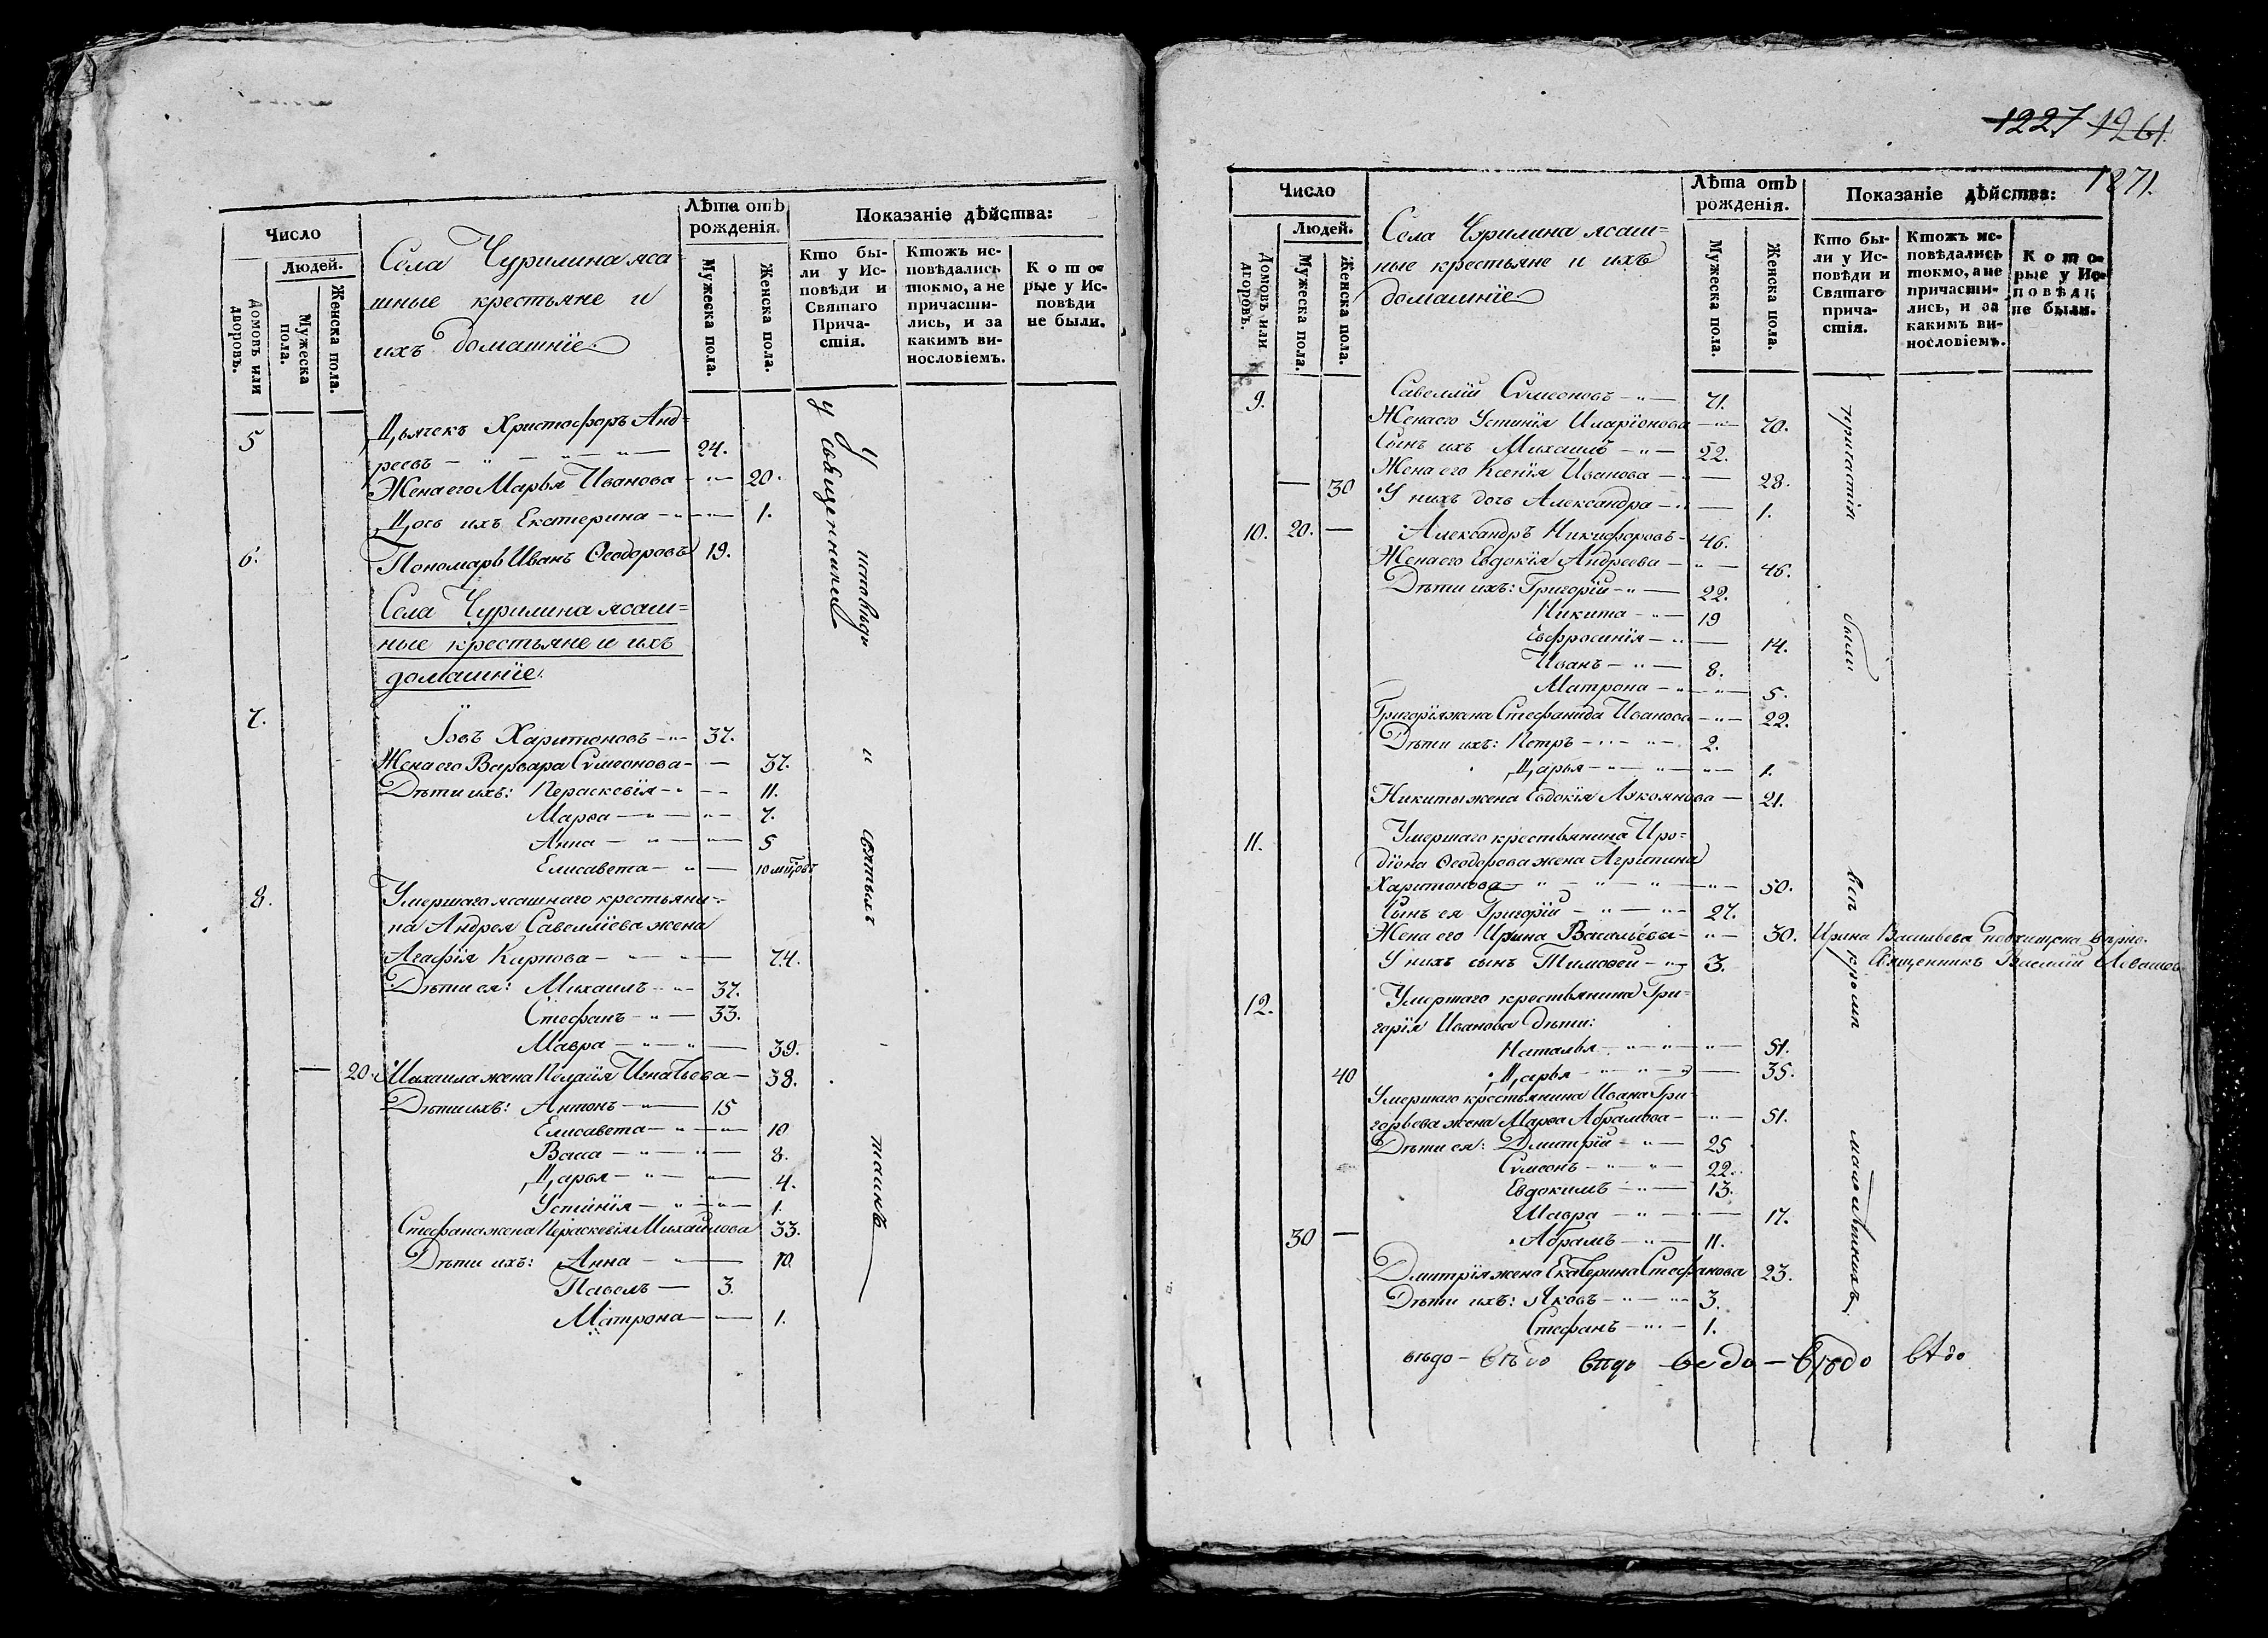 Число
Людей.
Домовъ или дворовъ.
Мужеска пола.
Женска пола.
Села Чурилина яса
шные крестьяне и
ихъ домашніе
Лѣта отъ рожденія.
Мужеска пола.
Женска пола.
Показаніе дѣйства:
Кто бы-
ли у Ис-
повѣди и
Святаго
Прича-
стія.
Ктожъ ис-
повѣдались
токмо, а не
причасти-
лись, и за
какимъ ви-
нословіемъ.
Кото-
рые у Ис-
повѣди
не были.
5 Дьячекъ Христофоръ Анд-
реевъ 24.
Жена его Марья Иванова 20.
Дочь ихъ Екатерина 1.
6. Пономарь Иванъ Ѳеодоровъ 19.
Села Чурилина ясаш-
ные крестьяне и ихъ
домашніе.
7. Іовъ Харитоновъ 37.
Жена его Варвара Сѵмеонова 37.
Дѣти ихъ: Пераскевія 11.
Марѳа 7.
Анна 5
Елисавета 10 мцовъ
8. Умершаго ясашнаго крестьяни-
на Андрея Савелліева жена
Агафія Карпова 74.
Дѣти ея: Михаилъ 37.
Стефанъ 33.
Мавра 39.
20 Михаила жена Пелагія Игнатьева 38.
Дѣти ихъ: Антонъ 15
Елисавета 10
Васса 8.
Дарья 4.
Устинія 1.
Стефана жена Пераскевія Михайлова 33.
Дѣти ихъ: Анна 10
Павелъ 3.
Матрона 1.
у священника
у исповѣди и святыхъ таинъ
1227 1261.
1271.
Число
Людей.
Домовъ или дворовъ.
Мужеска пола.
Женска пола.
Села Чурилина ясаш-
ные крестьяне и ихъ
домашніе
Лѣта отъ рожденія.
Мужеска пола.
Женска пола.
Показаніе дѣйства:
Кто бы-
ли у Ис-
повѣди и
Святаго
прича-
стія.
Ктожъ ис-
повѣдались
токмо, а не
причасти-
лись, и за
какимъ ви-
нословіемъ.
Кото-
рые у Ис-
повѣди
не были.
9. Савеллій Сѵмеоновъ 71.
Жена его Устинія Иларіонова 70.
Сынъ ихъ Михаилъ 22.
Жена его Ксенія Иванова 28.
30 У нихъ дочь Александра 1.
10. 20. Александръ Никифоровъ 46.
Жена его Евдокія Андреева 46.
Дѣти ихъ: Григорій 22.
Никита 19
Евфросинія 14.
Иванъ 8.
Матрона 5.
Григорія жена Стефанида Иванова 22.
Дѣти ихъ: Петръ 2.
Дарья 1.
Никиты жена Евдокія Лукоянова 21.
11. Умершаго крестьянина Иро-
діона Ѳеодорова жена Агрипина
Харитонова 50.
Сынъ ея Григорій 27.
Жена его Ирина Васильева 30. Ирина Васильева
У нихъ сынъ Тимоѳей 3. Священникъ Василій
12. Умершаго крестьянина Гри-
горія Иванова дѣти:
Наталья 51.
40 Дарья 35.
Умершаго крестьянина Ивана Гри-
горьева жена Марѳа Абрамова 51.
Дѣти ея: Дмитрій 25
Сѵмеонъ 22.
Евдокимъ 13.
Мавра 17.
30 Абрамъ 11.
Дмитрія жена Екатерина Стефанова 23.
Дѣти ихъ: Яковъ 3.
Стефанъ 1.
причастія были всѣ кромѣ малолѣтнихъ.
вѣдо - вѣдо вѣдо ведо - вѣдо вѣдо